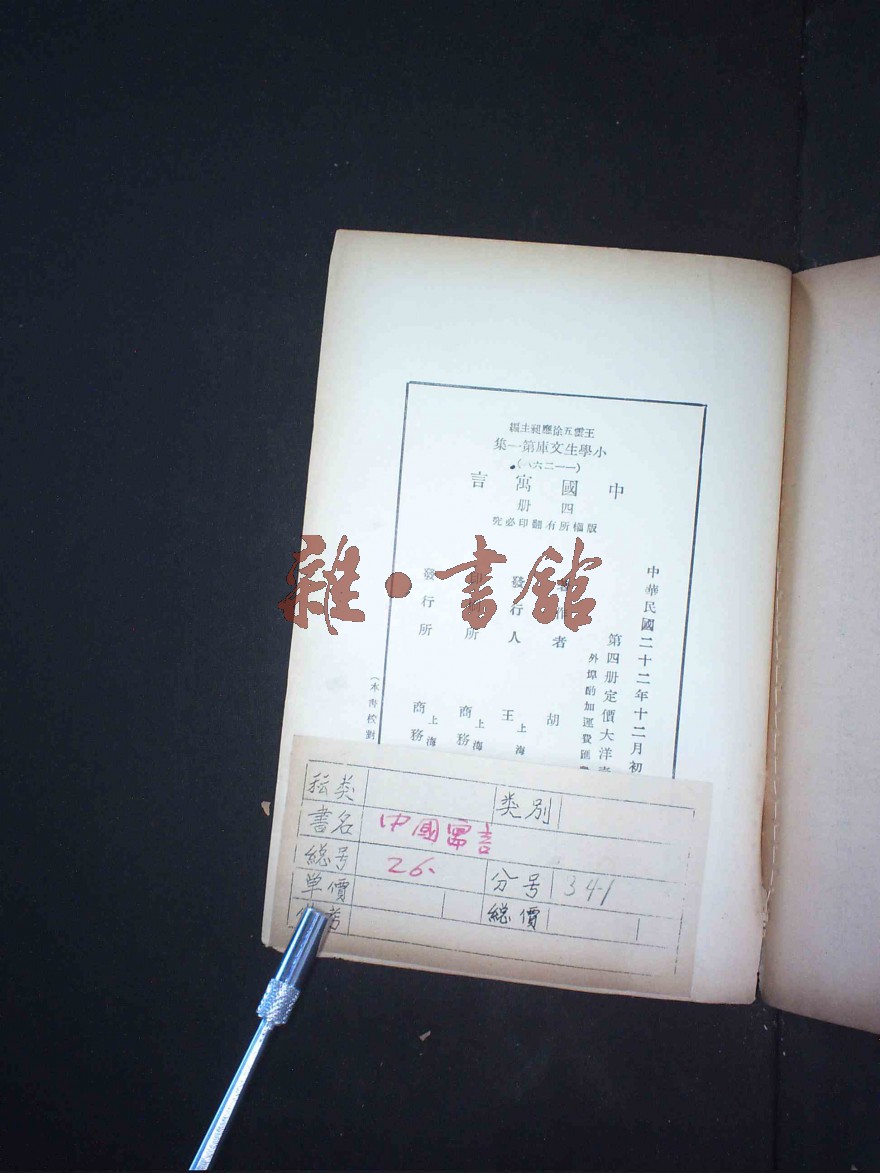 王雲五徐應昶主編
小學生文庫第一集
中國寓言
四册
版權所有翻印必究
中華民國二十二年十二月初
第四册定價大洋
外埠酌加運費匯費
著作者 胡
發行人 王 上海
印刷所 商務 上海
發行所 商務 上海
(本書校對
雜·書館
种类 类别
書名 中國寓言
總号 26. 分号 341
单價 總價